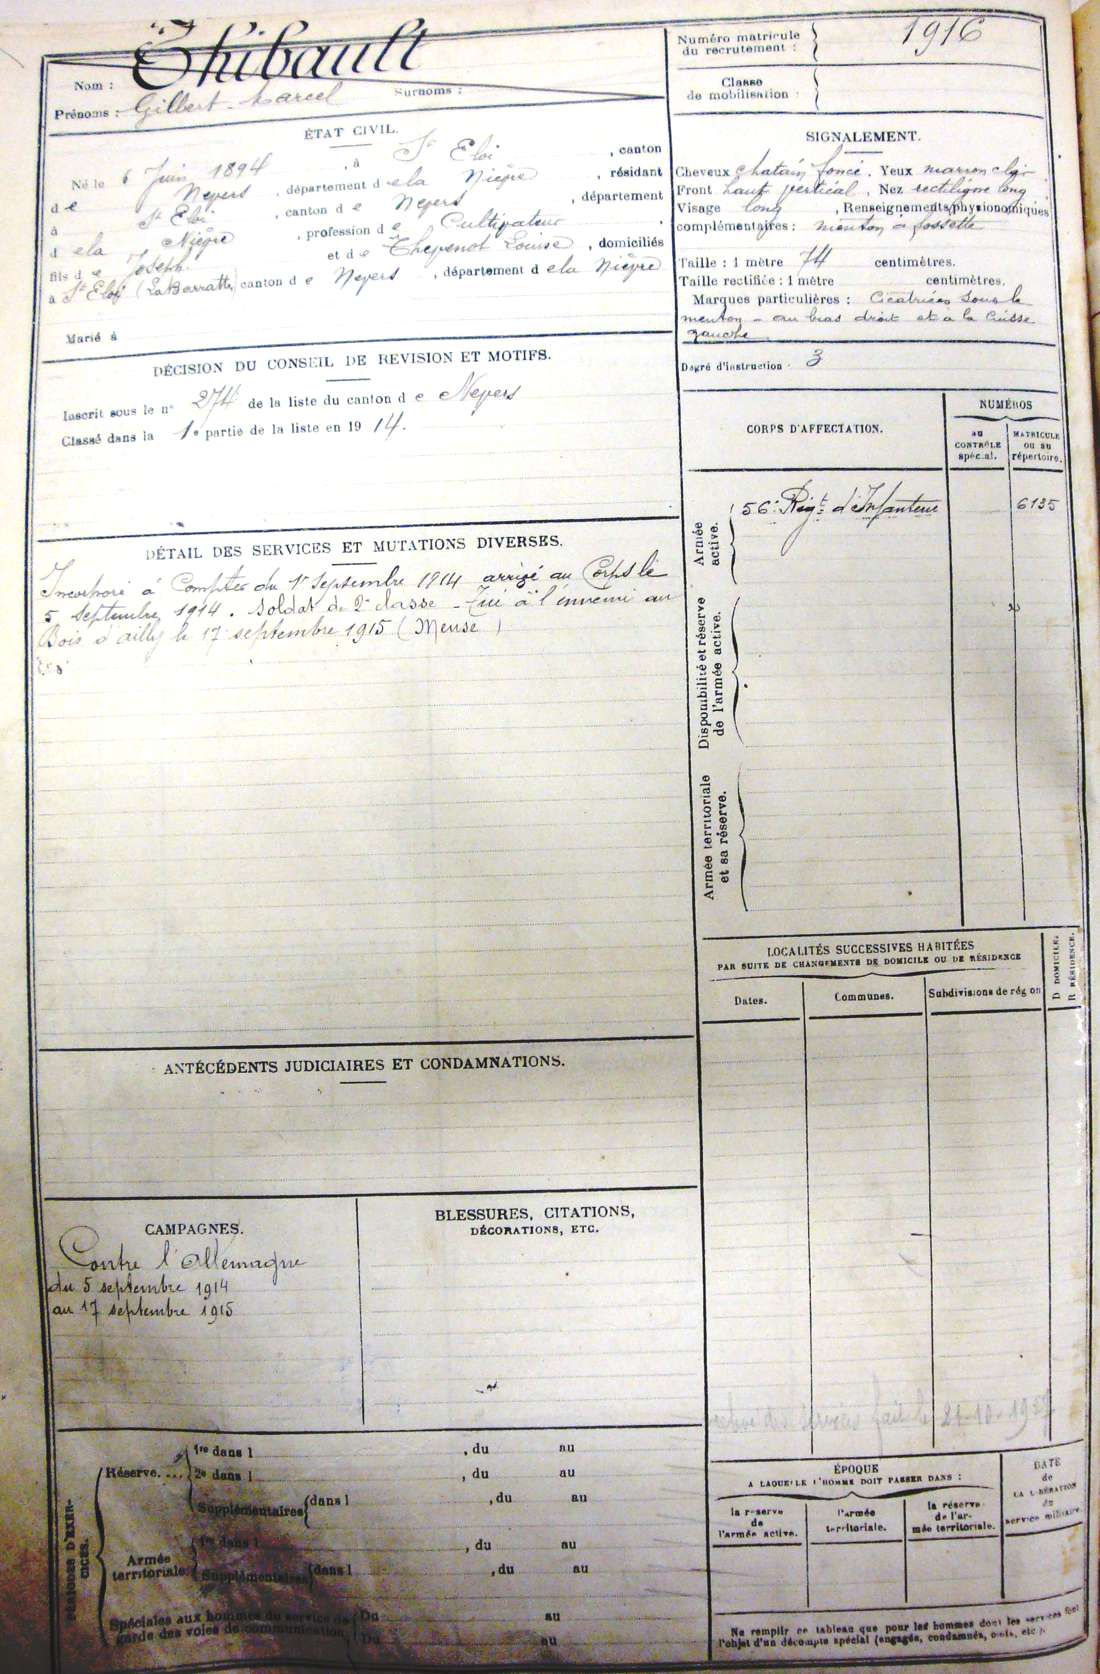 Nom : Thibault
Prénoms : Gilbert-Marcel Surnoms :
Numéro matricule du recrutement : 1916
Classe de mobilisation :
ÉTAT CIVIL.
Né le 6 Juin 1894, à St Eloi, canton
de Nevers, département de la Nièvre, résidant
à St Eloi, canton de Nevers, département
de la Nièvre, profession de Cultivateur,
fils de Joseph et de Thevenot Louise, domiciliés
à St Eloy (La Barratte) canton de Nevers, département de la Nièvre
Marié à
SIGNALEMENT.
Cheveux chatain foncé, Yeux marron clair
Front haut vertical, Nez rectiligne long
Visage long, Renseignements physionomiques
complémentaires : menton à fossette
Taille : 1 mètre 74 centimètres.
Taille rectifiée : 1 mètre centimètres.
Marques particulières : Cicatrices sous le
menton - au bras droit et à la Cuisse
gauche
Degré d'instruction : 3
DÉCISION DU CONSEIL DE REVISION ET MOTIFS.
Inscrit sous le n° 274 de la liste du canton de Nevers
Classé dans la 1e partie de la liste en 1914.
CORPS D'AFFECTATION.
NUMÉROS
AU CONTRÔLE spécial.
MATRICULE OU AU répertoire.
Armée active.
56e Régt d'Infanterie 6135
Disponibilité et réserve de l'armée active.
Armée territoriale et sa réserve.
DÉTAIL DES SERVICES ET MUTATIONS DIVERSES.
Incorporé à Compter du 1r Septembre 1914 arrivé au Corps le
5 septembre 1914. Soldat de 2e classe - Tué à l'ennemi au
Bois d'ailly le 17 septembre 1915 (Meuse)
LOCALITÉS SUCCESSIVES HABITÉES
PAR SUITE DE CHANGEMENTS DE DOMICILE OU DE RÉSIDENCE
Dates. Communes. Subdivisions de région
D DOMICILE.
R RÉSIDENCE.
ANTÉCÉDENTS JUDICIAIRES ET CONDAMNATIONS.
CAMPAGNES.
Contre l'Allemagne
du 5 septembre 1914
au 17 septembre 1915
BLESSURES, CITATIONS,
DÉCORATIONS, ETC.
des services fait le 21-10-1937
PÉRIODES D'EXERCICES.
Réserve. ...
1re dans l , du au
2e dans l , du au
Supplémentaires dans l , du au
Armée territoriale
1re dans l , du au
Supplémentaires dans l , du au
Spéciales aux hommes du service de garde des voies de communication.
Du au
Du au
ÉPOQUE
A LAQUELLE L'HOMME DOIT PASSER DANS :
la réserve de l'armée active.
l'armée territoriale.
la réserve de l'armée territoriale.
DATE de LA LIBÉRATION du service militaire.
Ne remplir ce tableau que pour les hommes dont les services font
l'objet d'un décompte spécial (engagés, condamnés, omis, etc.).